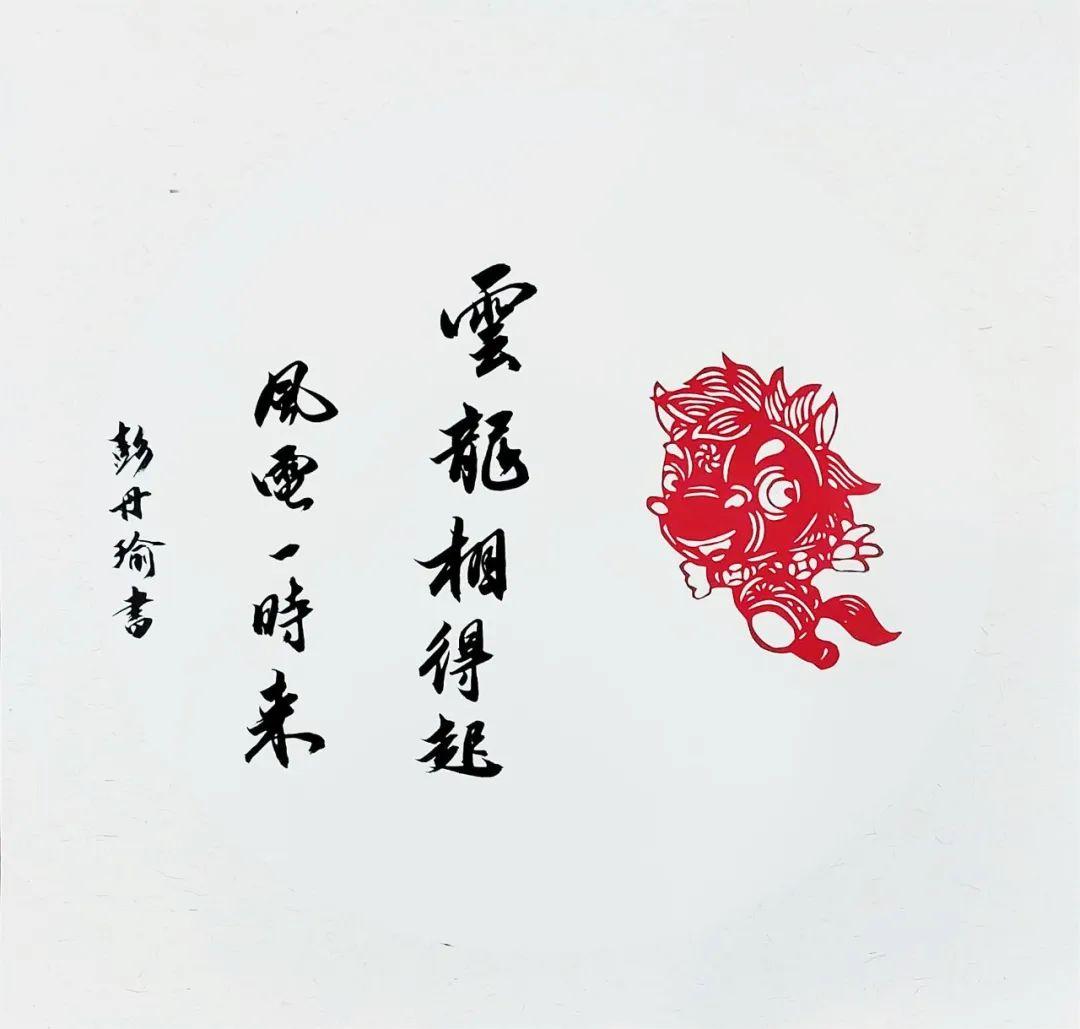 雲龍相得起
風電一時来
彭丹瑜書